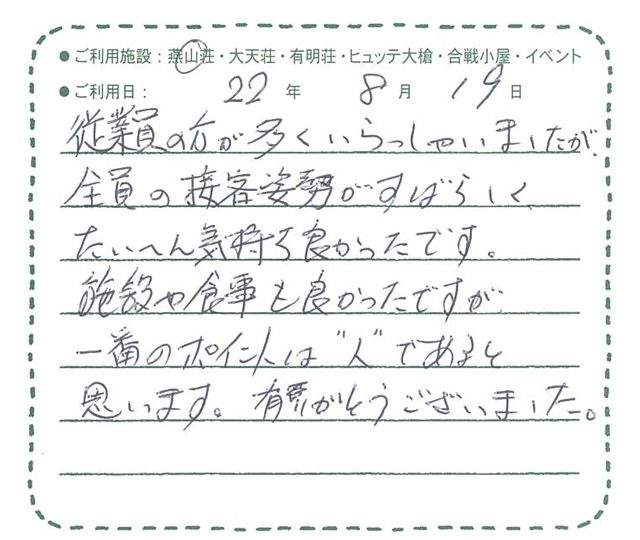 ●ご利用施設：燕山荘・大天荘・有明荘・ヒュッテ大槍・合戦小屋・イベント
●ご利用日： 22 年 8 月 19 日
従業員の方が多くいらっしゃいましたが、
全員の接客姿勢がすばらしく
たいへん気持ち良かったです。
施設や食事も良かったですが
一番のポイントは〝人〟であると
思います。有難がとうございました。